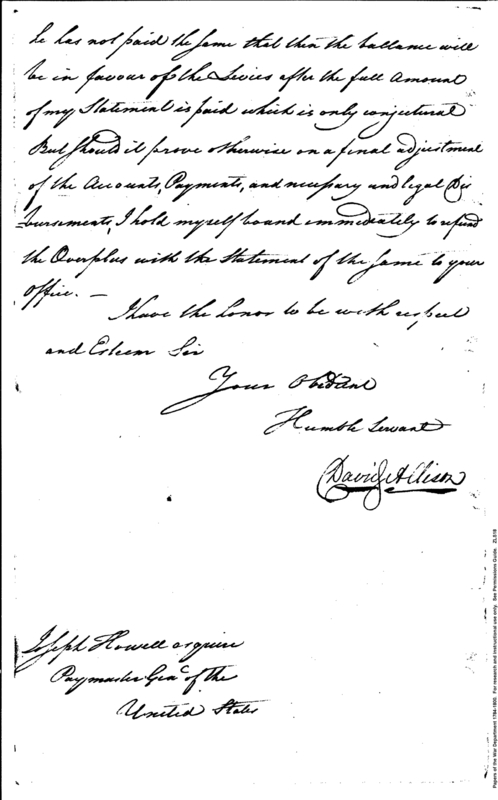 he has not paid the same that then the ballance will
be in favour of the Levies after the full Amount
of my Statement is paid which is only conjectural
But should it prove otherwise on a final adjustment
of the Accounts, Payments, and necessary and legal Dis
bursements, I hold myself bound immediately to refund
the Overplus with the Statement of the same to your
office. —
I have the honor to be with respect
and Esteem Sir
Your Obedient
Humble Servant
David Allison
Joseph Howell esquire
Paymaster Genl of the
United States
Papers of the War Department 1784-1800. For research and instructional use only. See Permissions Guide. ZLS18